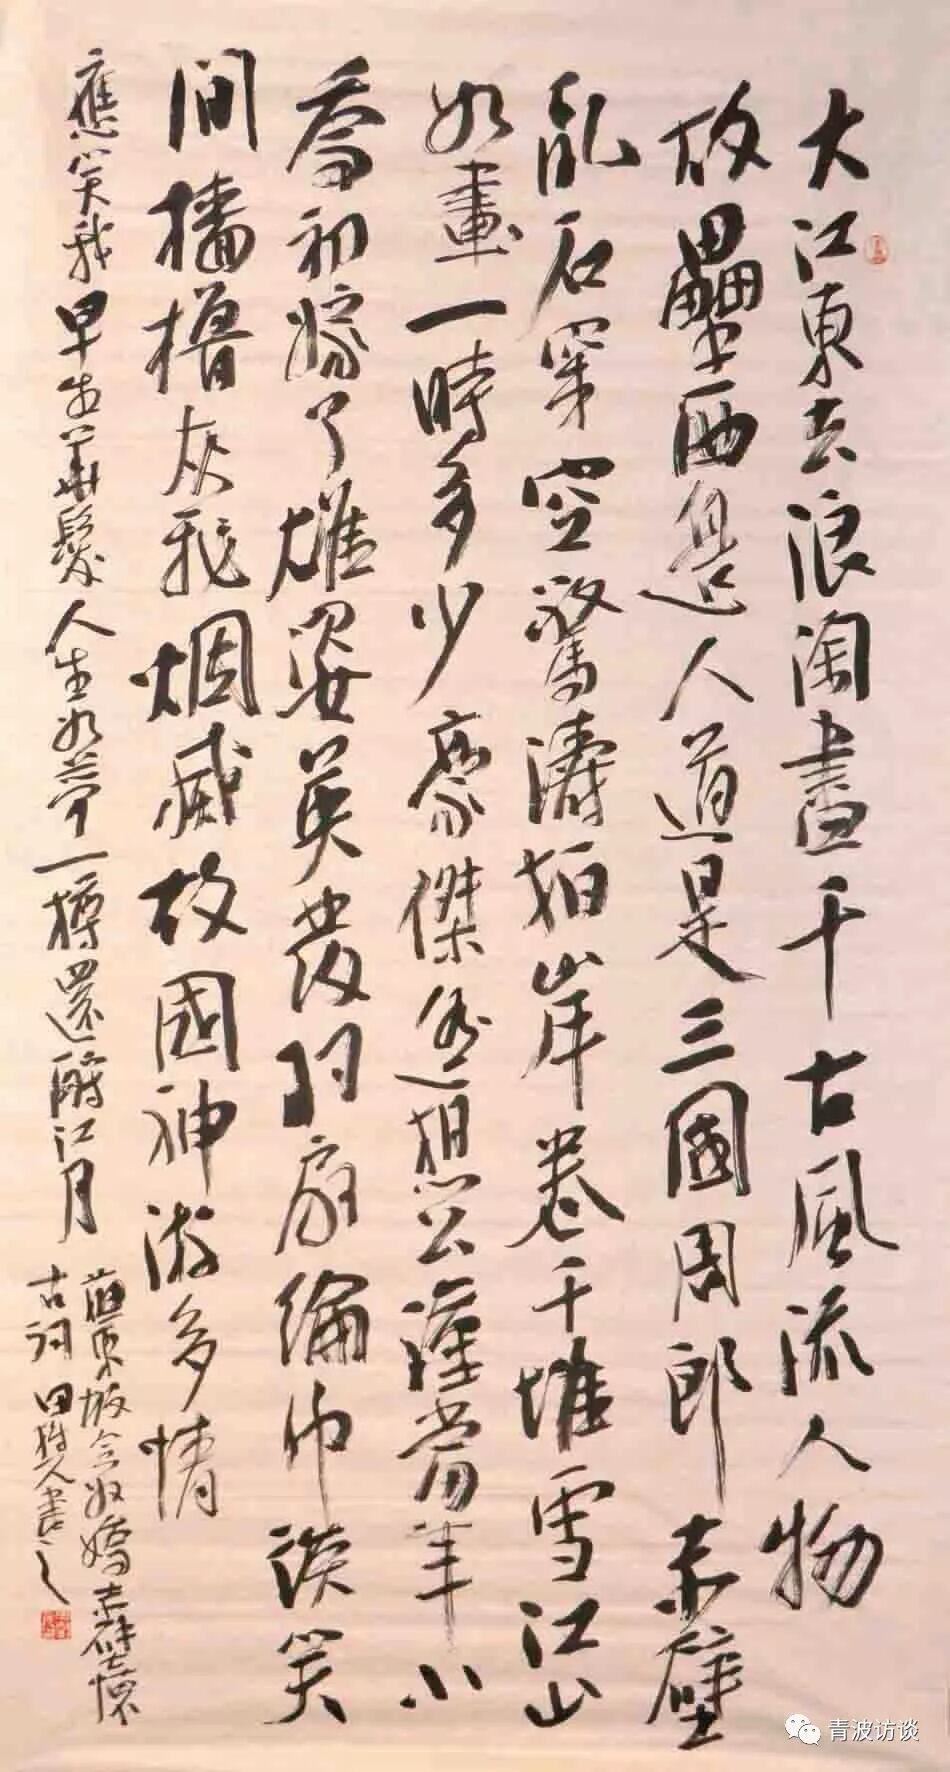 大江東去浪淘盡千古風流人物
故壘西邊人道是三國周郎赤壁
亂石穿空驚濤拍岸卷千堆雪江山
如畫一時多少豪傑遙想公瑾當年小
喬初嫁了雄姿英發羽扇綸巾談笑
間檣櫓灰飛烟滅故國神游多情
應笑我早生華髮人生如夢一樽還酹江月
蘇東坡念奴嬌赤壁懷
古詞田 書之
青波访谈